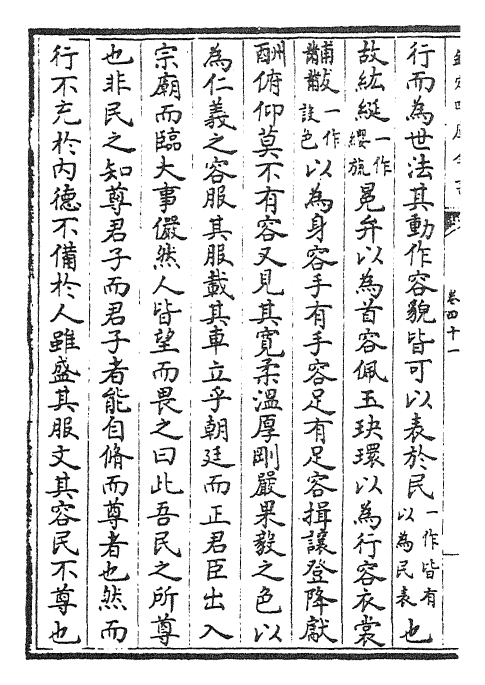 卷四十一
行而為世法其動作容貌皆可以表於民一作皆有以為民表也
故紘綖一作纓旒冕弁以為首容佩玉玦環以為行容衣裳
黼黻一作設色以為身容手有手容足有足容揖讓登降獻
酬俯仰莫不有容又見其寛柔溫厚剛嚴果毅之色以
為仁義之容服其服載其車立乎朝廷而正君臣出入
宗廟而臨大事儼然人皆望而畏之曰此吾民之所尊
也非民之知尊君子而君子者能自脩而尊者也然而
行不充於内德不備於人雖盛其服文其容民不尊也